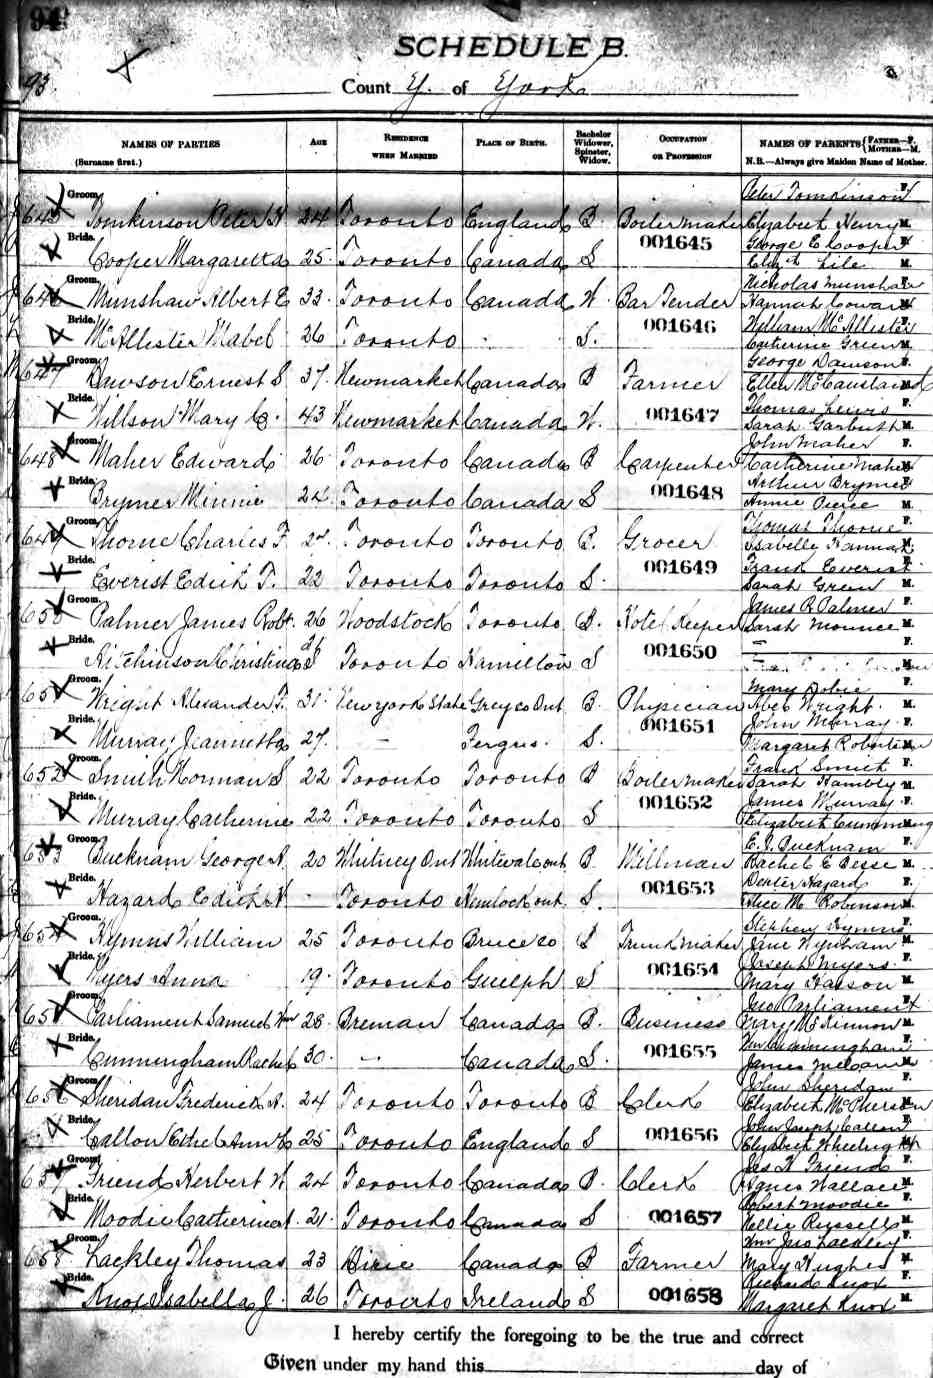 94
SCHEDULE B.
93
County of York
NAMES OF PARTIES
(Surname first.)
AGE
RESIDENCE
WHEN MARRIED
PLACE OF BIRTH.
Bachelor
Widower,
Spinster,
Widow.
OCCUPATION
OR PROFESSION
NAMES OF PARENTS { FATHER—F. MOTHER—M.
N.B.—Always give Maiden Name of Mother.
Peter Tomkinson F.
Groom. 645 Tomkinson Peter H 24 Toronto England B. Boilermaker Elizabeth Henry M.
001645
George E Cooper F.
Bride. Cooper Margaretta 25 Toronto Canada S Elizth Lile M.
Nicholas Munshaw F.
Groom. 646 Munshaw Albert E 33 Toronto Canada W. Bar Tender Hannah Coward M.
001646
William McAllister F.
Bride. McAllister Mabel 26 Toronto " S. Catherine Green M.
George Dawson F.
Groom. 647 Dawson Ernest S. 37 Newmarket Canada B Farmer Ellen McCausland M.
001647
Thomas Lewis F.
Bride. Willson Mary 43 Newmarket Canada W. Sarah Garbutt M.
John Maher F.
Groom. 648 Maher Edward 26 Toronto Canada B Carpenter Catherine Maher M.
001648
Arthur Brymer F.
Bride. Brymer Minnie 24 Toronto Canada S Annie Pierce M.
Thomas Thorne F.
Groom. 649 Thorne Charles F. 27 Toronto Toronto B. Grocer Isabelle Hannah M.
001649
Frank Everist F.
Bride. Everist Edith T. 22 Toronto Toronto S. Sarah Green M.
James R Palmer F.
Groom. 650 Palmer James Robt. 26 Woodstock Toronto B. Hotel Keeper Sarah Mounce M.
001650
— F.
Bride. Hitchinson Christina Toronto Hamilton S M.
Mary Dobie F.
Groom. 651 Wright Alexander F. 31 New York State Grey co Ont B. Physician Abel Wright M.
001651
John Murray F.
Bride. Murray Jeannetta 27. — Fergus. S. Margaret Robertson M.
Frank Smith F.
Groom. 652 Smith Norman S 22 Toronto Toronto B Boilermaker Sarah Hambly M.
001652
James Murray F.
Bride. Murray Catherine 22 Toronto Toronto S Elizabeth Cumming M.
E. J. Bucknam F.
Groom. 653 Bucknam George A. 20 Whitney Ont Whitevale ont B. Millman Rachel E Besse M.
001653
Dexter Hazard F.
Bride. Hazard Edith N - Toronto Hemlock ont. S. Alice M Robinson M.
Stephen Hymns F.
Groom. 654 Hymns William 25 Toronto Bruce co B Trunk maker Jane Wyndham M.
001654
Joseph Myers F.
Bride. Myers Anna 19. Toronto Guelph S Mary Hatson M.
Jno Parliament F.
Groom. 655 Parliament Samuel Wm 28. Breman Canada B. Business Mary McKinnon M.
001655
Wm Cunningham F.
Bride. Cunningham Rachel 30. — Canada S. James McCann M.
John Sheridan F.
Groom. 656 Sheridan Frederick A. 24 Toronto Toronto B Clerk Elizabeth McPherson M.
001656
John Joseph Callon F.
Bride. Callon Ethel Ann 25 Toronto England S Elizabeth Wheelright M.
Jas H Friend F.
Groom. 657 Friend Herbert W. 24 Toronto Canada B. Clerk Agnes Wallace M.
001657
Robert Moodie F.
Bride. Moodie Catherine 21. Toronto Canada S Nellie Russell M.
Wm Jno Lackley F.
Groom. 658 Lackley Thomas 23 Canada B Farmer Mary Hughes M.
001658
Richard Knox F.
Bride. Knox Isabella J. 26 Toronto Ireland S Margaret Knox M.
I hereby certify the foregoing to be the true and correct
Given under my hand this day of